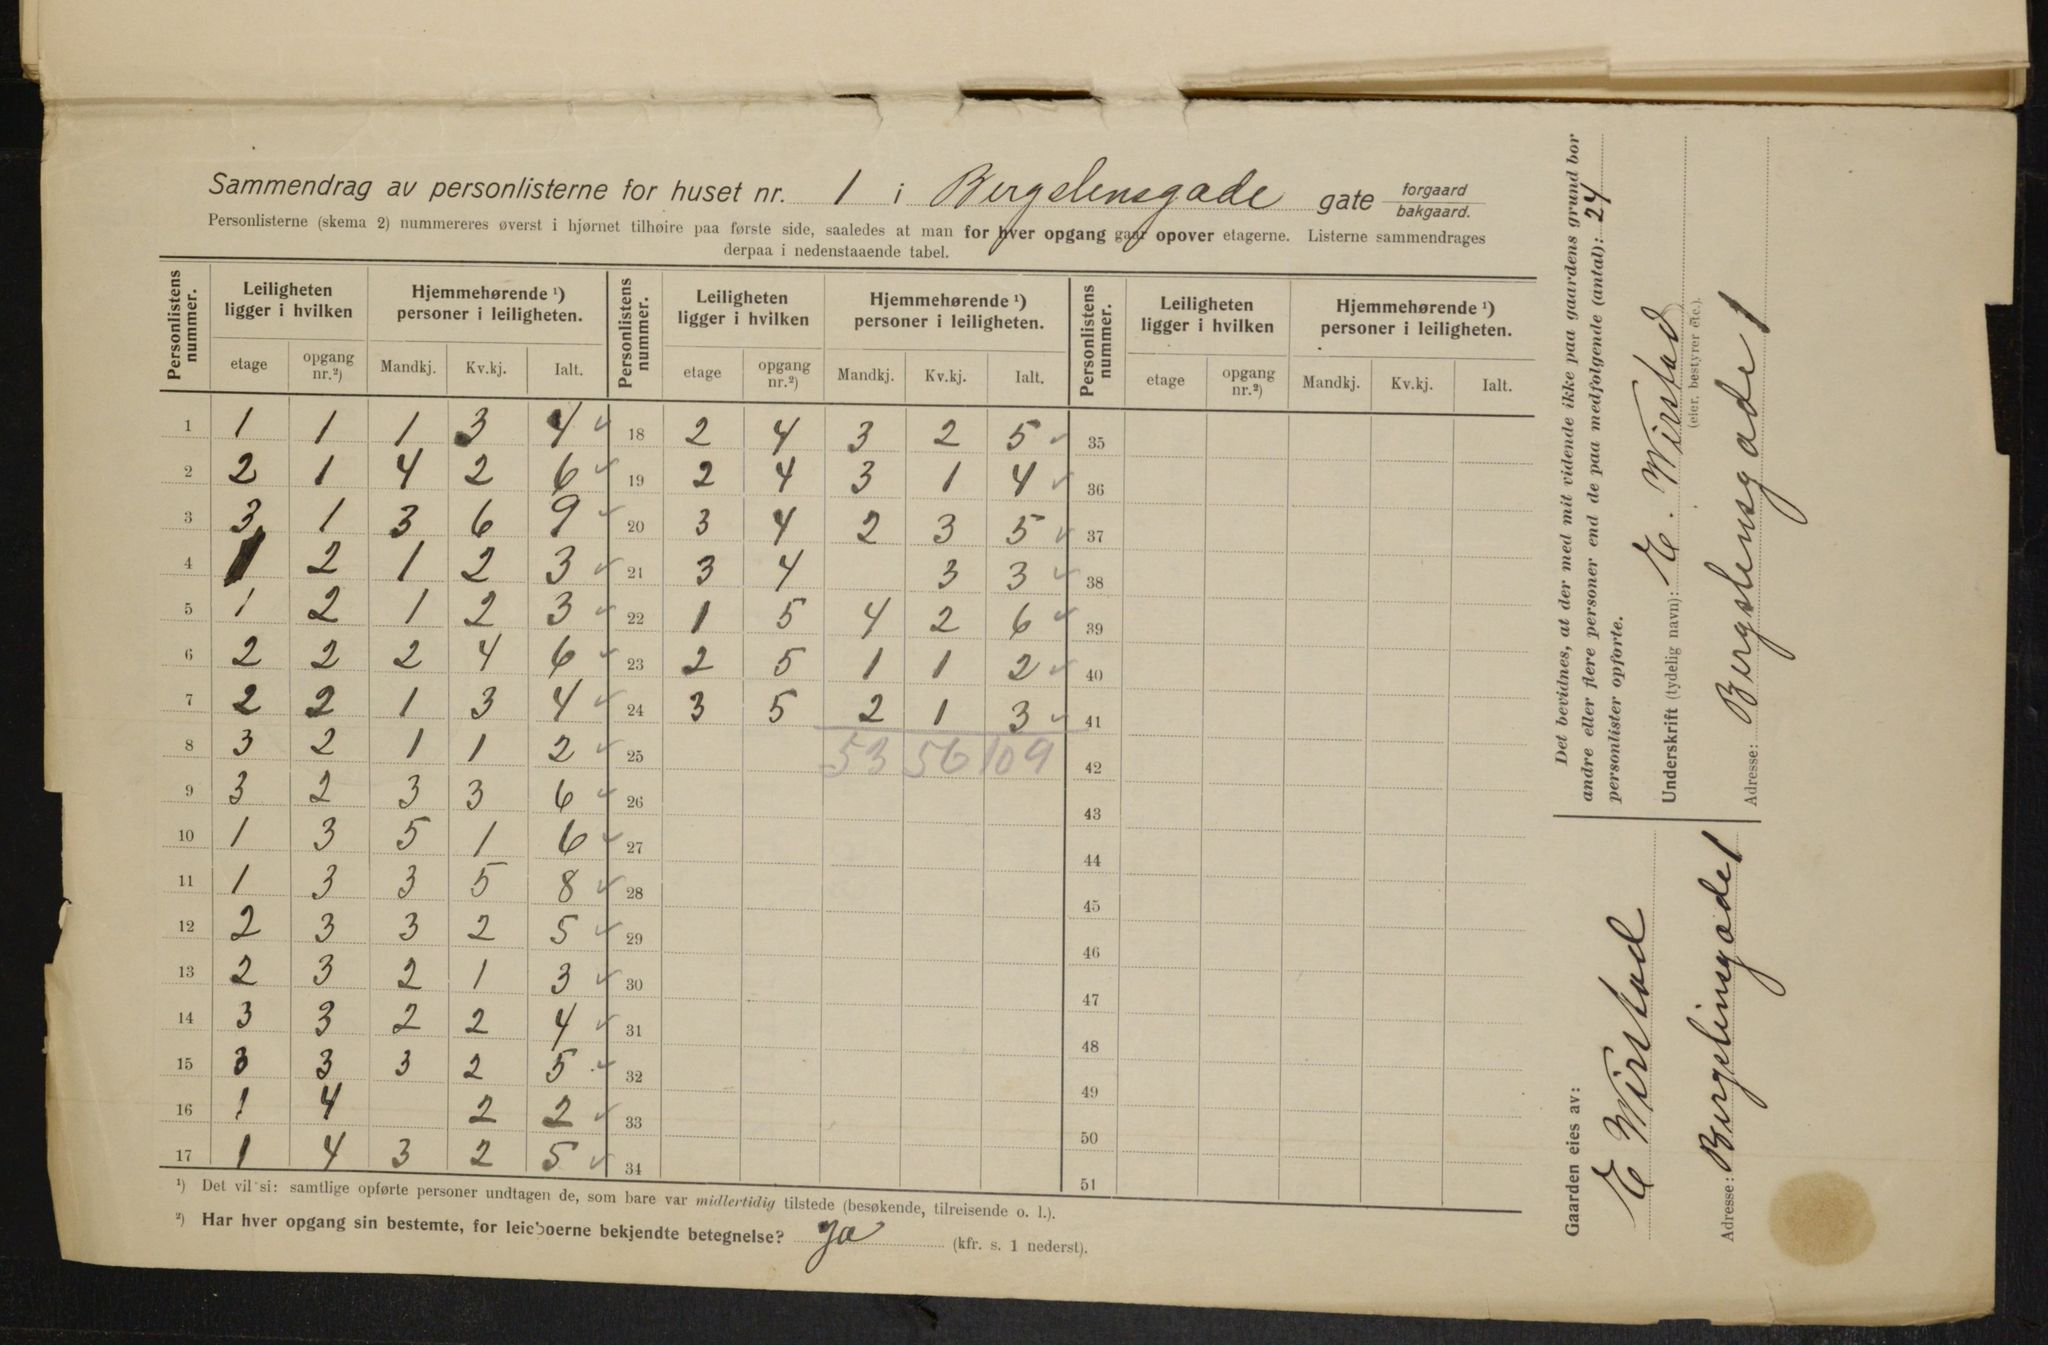 Sammendrag av personlisterne for huset nr. 1 i Bergslensgade gate forgaard bakgaard.
Personlisterne (skema 2) nummereres øverst i hjørnet tilhøire paa første side, saaledes at man for hver opgang gaar opover etagerne. Listerne sammendrages
derpaa i nedenstaaende tabel.
Personlistens nummer. Leiligheten ligger i hvilken Hjemmehørende ¹) personer i leiligheten. Personlistens nummer. Leiligheten ligger i hvilken Hjemmehørende ¹) personer i leiligheten. Personlistens nummer. Leiligheten ligger i hvilken Hjemmehørende ¹) personer i leiligheten.
etage opgang nr.²) Mandkj. Kv.kj. Ialt. etage opgang nr.²) Mandkj. Kv.kj. Ialt. etage opgang nr.²) Mandkj. Kv.kj. Ialt.
1 1 1 1 3 4 ✓ 18 2 4 3 2 5 ✓ 35
2 2 1 4 2 6 ✓ 19 2 4 3 1 4 ✓ 36
3 3 1 3 6 9 ✓ 20 3 4 2 3 5 ✓ 37
4 1 2 1 2 3 ✓ 21 3 4 3 3 ✓ 38
5 1 2 1 2 3 ✓ 22 1 5 4 2 6 ✓ 39
6 2 2 2 4 6 ✓ 23 2 5 1 1 2 ✓ 40
7 2 2 1 3 4 ✓ 24 3 5 2 1 3 ✓ 41
8 3 2 1 1 2 ✓ 25 53 56 109 42
9 3 2 3 3 6 ✓ 26 43
10 1 3 5 1 6 ✓ 27 44
11 1 3 3 5 8 ✓ 28 45
12 2 3 3 2 5 ✓ 29 46
13 2 3 2 1 3 ✓ 30 47
14 3 3 2 2 4 ✓ 31 48
15 3 3 3 2 5 ✓ 32 49
16 1 4 2 2 ✓ 33 50
17 1 4 3 2 5 ✓ 34 51
¹) Det vil si: samtlige opførte personer undtagen de, som bare var midlertidig tilstede (besøkende, tilreisende o. l.).
²) Har hver opgang sin bestemte, for leieboerne bekjendte betegnelse? Ja (kfr. s. 1 nederst).
Det bevidnes, at der med mit vidende ikke paa gaardens grund bor
andre eller flere personer end de paa medfølgende (antal): 24
personlister opførte.
Underskrift (tydelig navn): E. Wirstad
(eier, bestyrer etc.).
Adresse: Bergslensgade 1
Gaarden eies av:
E Wirstad
Adresse: Bergslinsgade 1